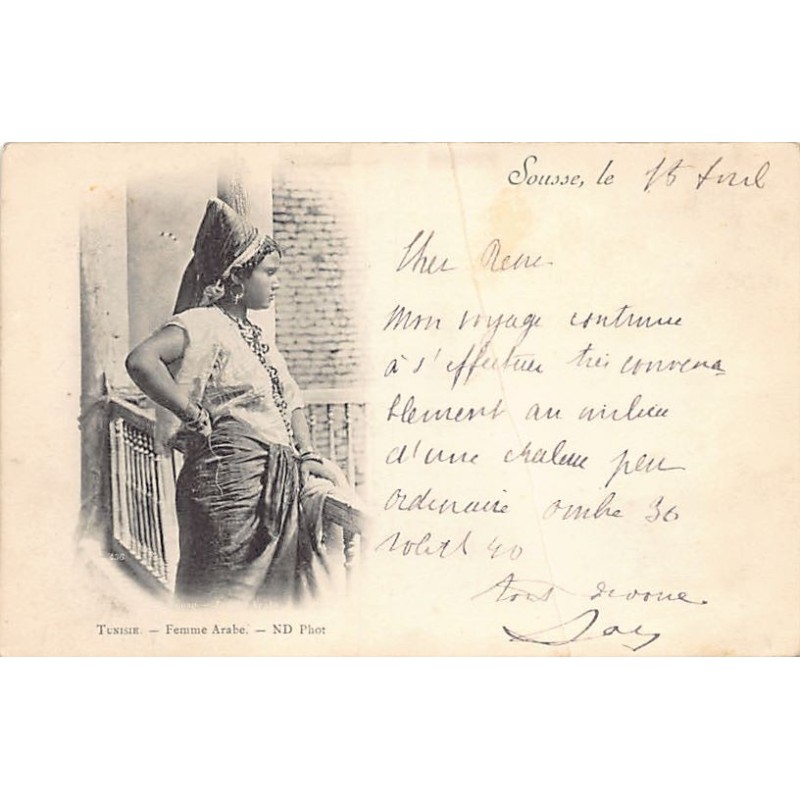 Sousse, le 15 Avril
Cher
Mon voyage continue
à s'effectuer très convena
blement au milieu
d'une chaleur peu
ordinaire ombre 30
soleil 40
Tout dévoué
TUNISIE. — Femme Arabe. — ND Phot